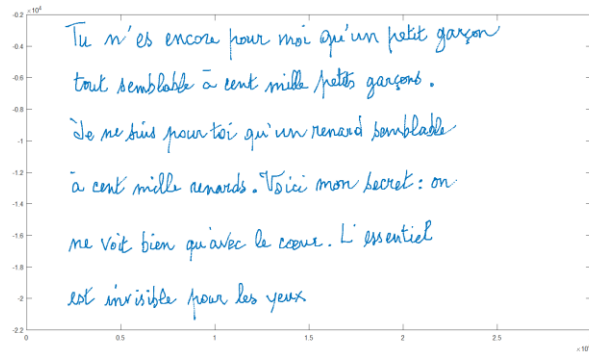 -0.2
×10⁴
-0.4
-0.6
-0.8
-1
-1.2
-1.4
-1.6
-1.8
-2
-2.2
0
0.5
1
1.5
2
2.5
Tu n'es encore pour moi qu'un petit garçon
tout semblable à cent mille petits garçons.
Je ne suis pour toi qu'un renard semblable
à cent mille renards. Voici mon secret : on
ne voit bien qu'avec le cœur. L'essentiel
est invisible pour les yeux